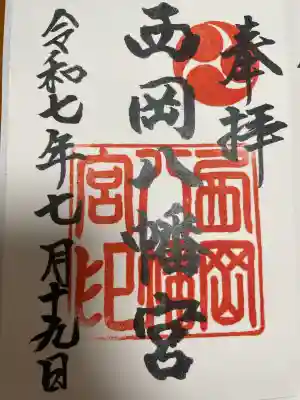 奉拝
西岡八幡宮
令和七年七月十九日
西岡
八幡
宮印